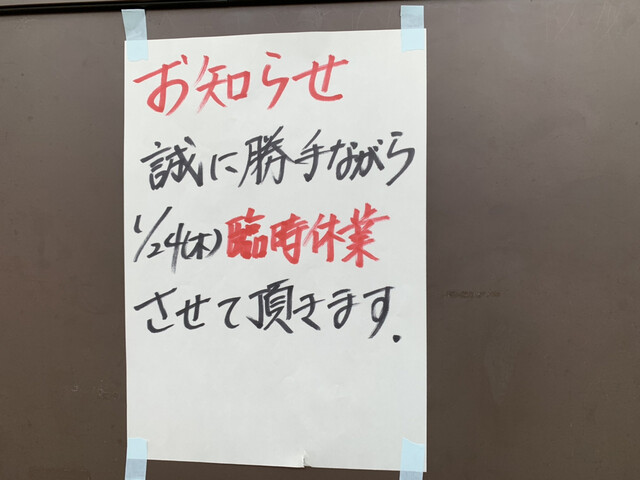 お知らせ
誠に勝手ながら
1/24(木)臨時休業
させて頂きます.